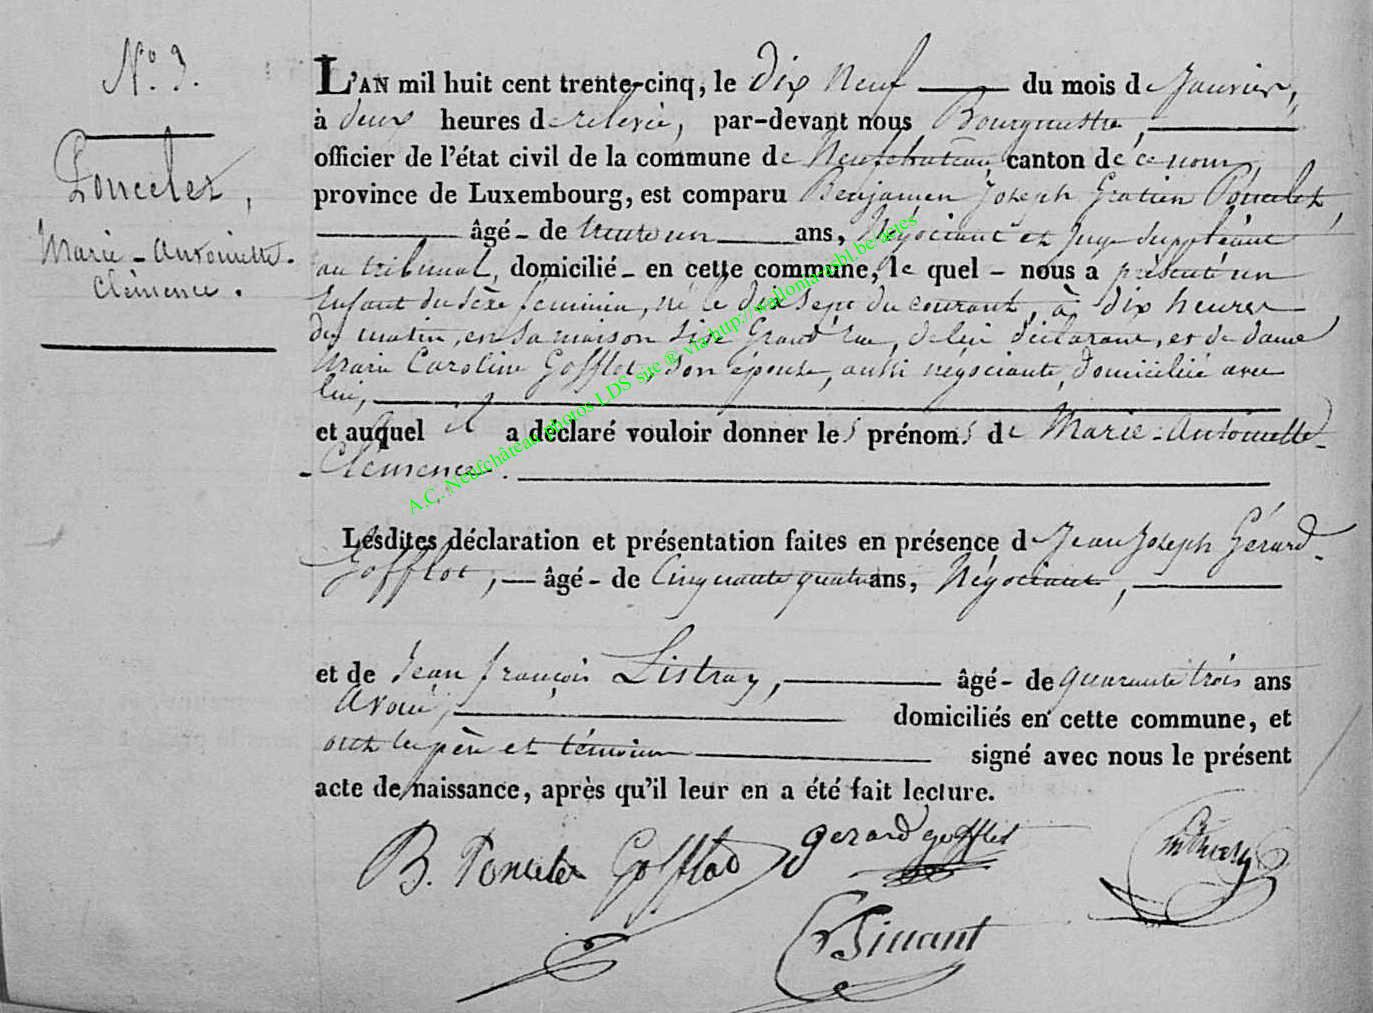 N.° 3.
Poncelet,
Marie-Antoinette-
Clémence.
L'AN mil huit cent trente-cinq, le dix neuf du mois de Janvier,
à deux heures de relevée, par-devant nous Bourgmestre,
officier de l'état civil de la commune de Neufchateau, canton de ce nom,
province de Luxembourg, est comparu Benjamin Joseph Gratien Poncelet,
âgé - de trente un ans, Négociant et Juge Suppléant
au tribunal, domicilié - en cette commune, le quel - nous a présenté un
Enfant du Sèxe féminin, né le dix sept du courant, à dix heures
du matin, en sa maison sise Grand' rue, de lui déclarant, et de dame
Marie Caroline Gofflot, son épouse, aussi négociante, domiciliée avec
lui,
et auquel il a déclaré vouloir donner les prénoms de Marie-Antoinette-
-Clémence.
Lesdites déclaration et présentation faites en présence de Jean Joseph Gérard-
Gofflot, âgé - de Cinquante quatre ans, Négociant,
et de Jean françois Listray, âgé - de quarante trois ans
Avoué, domiciliés en cette commune, et
ont les père et témoins signé avec nous le présent
acte de naissance, après qu'il leur en a été fait lecture.
B. Poncelet Gofflot gerard gofflot
A.C. Neufchâteau photos LDS site ® via http://wallonia.asbl.be/actes